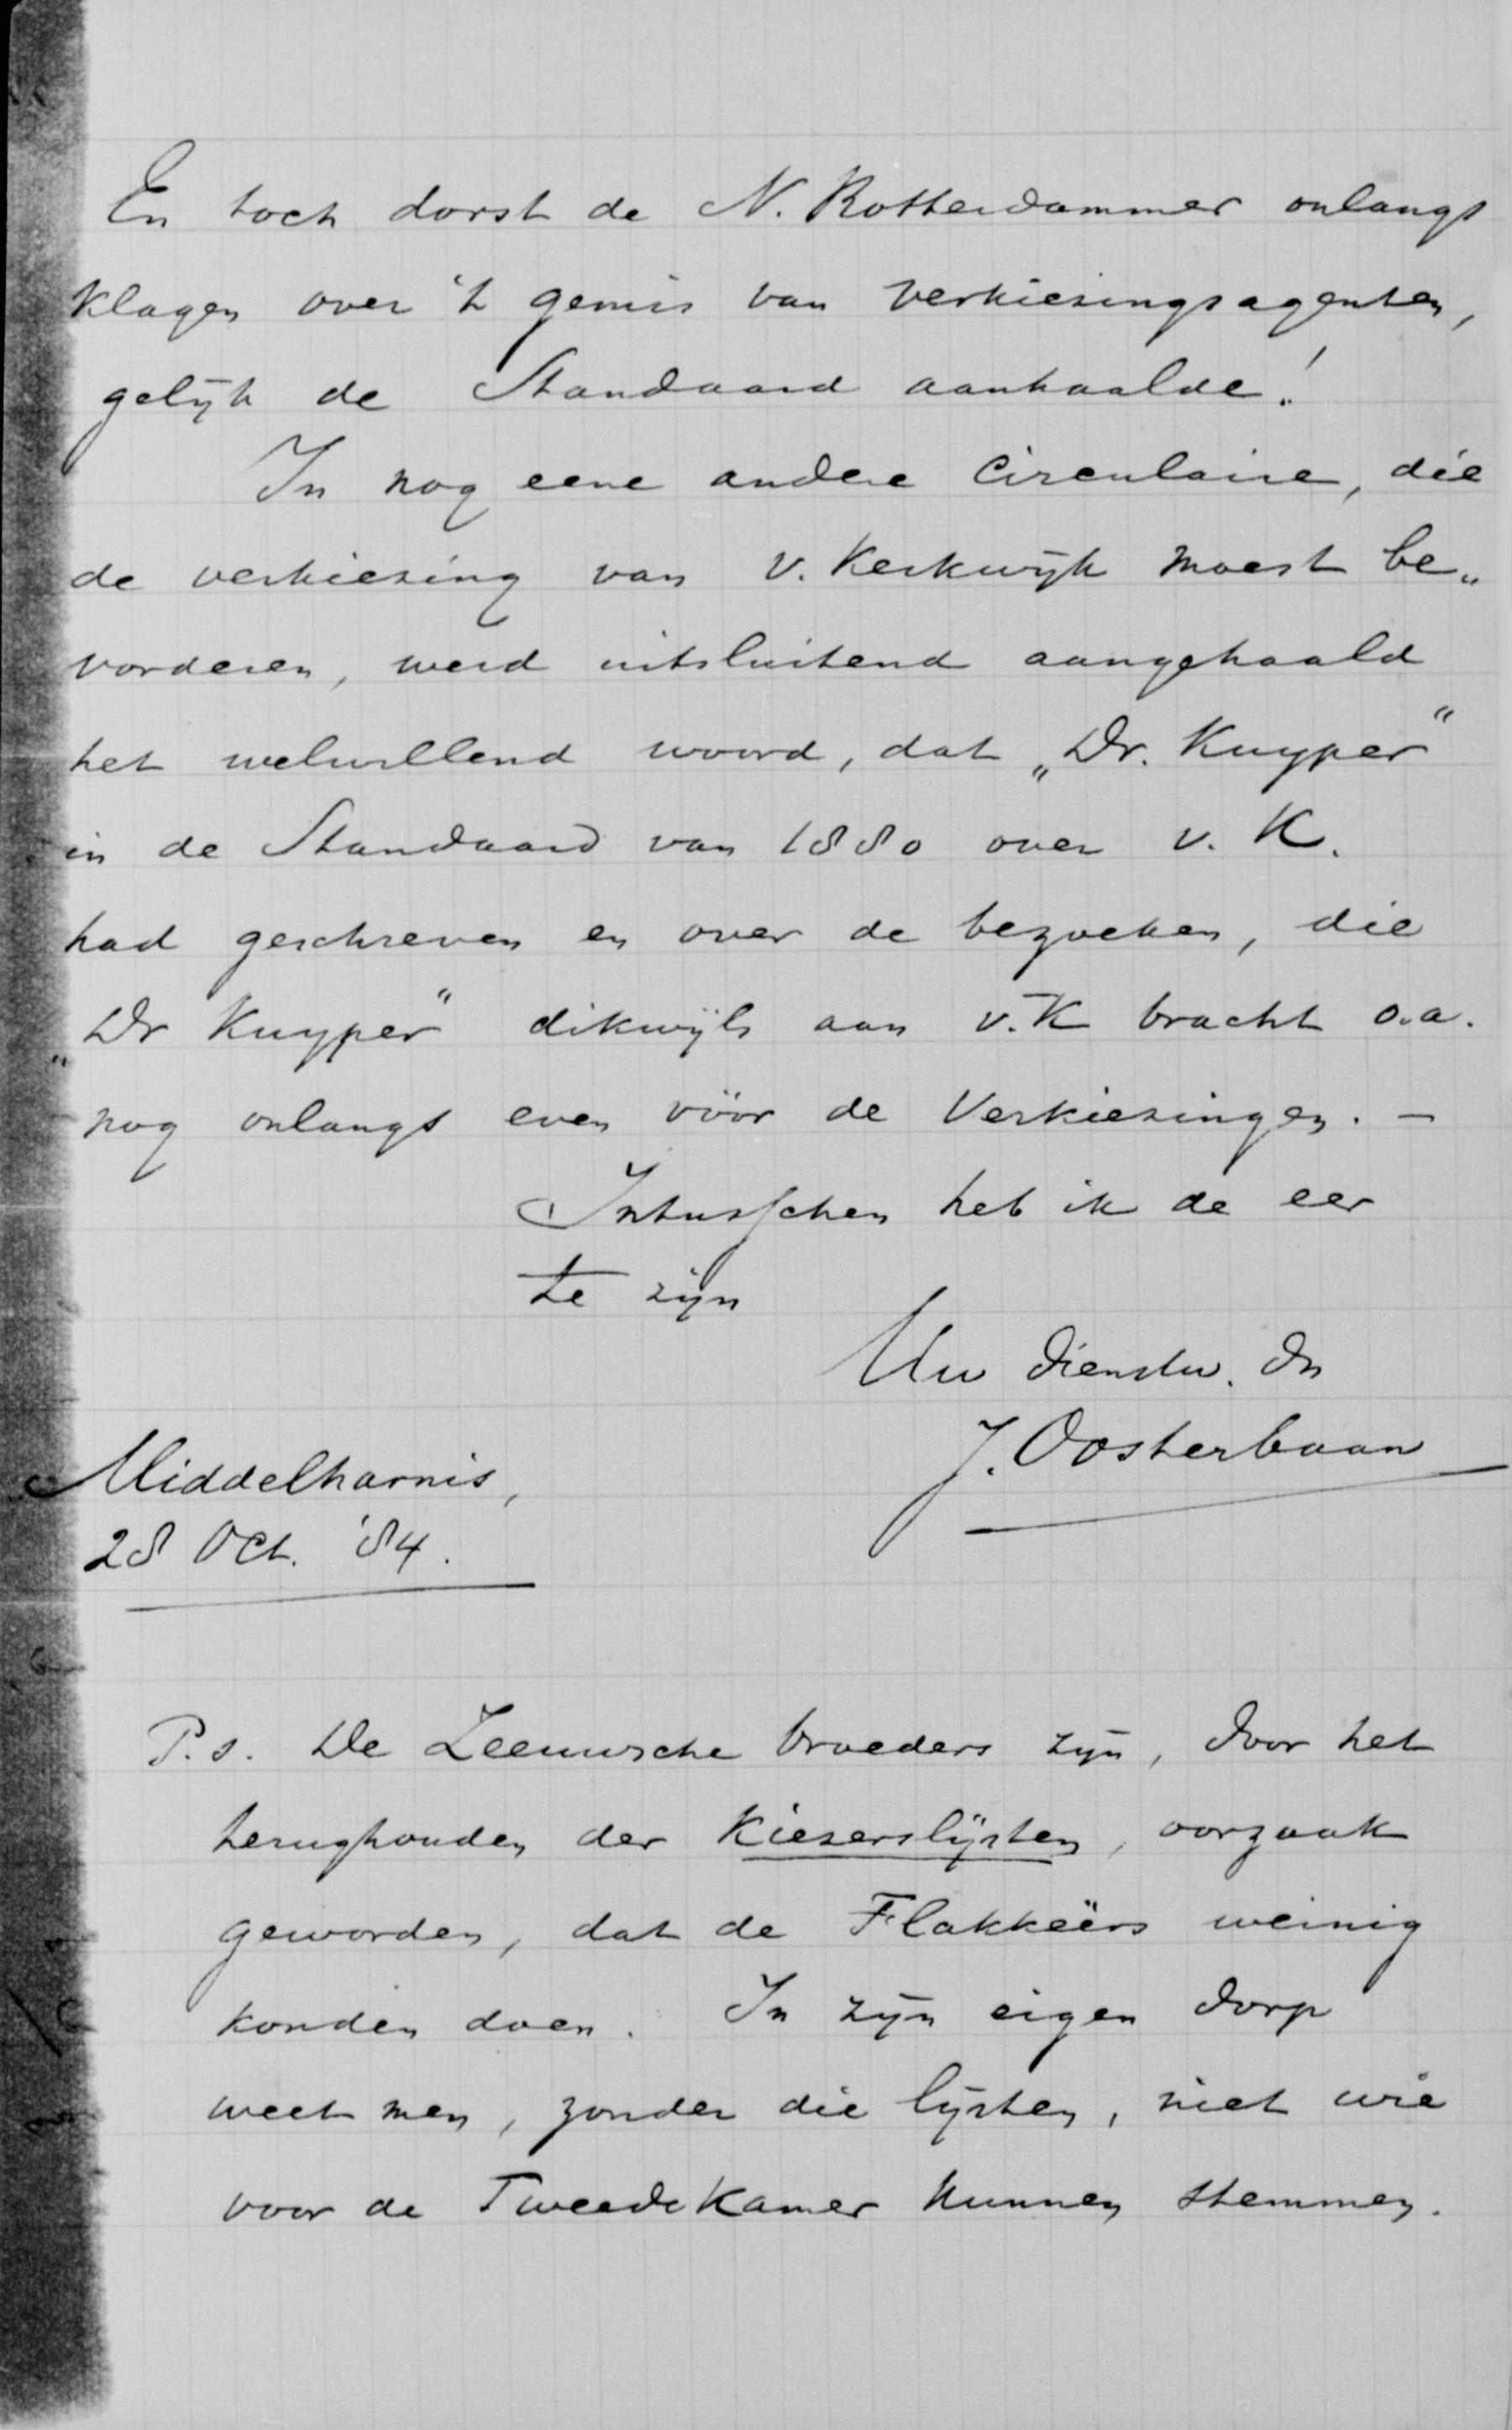 En toch dorst de N. Rotterdammer onlangs
klagen over 't gemis van verkiezingsagenten,
gelijk de Standaard aanhaalde!
In nog eene andere circulaire, die
de verkiezing van v. Kerkwijk moest be„
vorderen, werd uitsluitend aangehaald
het welwillend woord, dat „Dr. Kuyper"
in de Standaard van 1880 over v. K.
had geschreven en over de bezoeken, die
„Dr Kuyper" dikwijls aan v. K bracht o.a.
nog onlangs even vóór de Verkiezingen. –
Intusschen heb ik de eer
te zijn
Uw dienstw. Dr
J. Oosterbaan
Middelharnis,
28 Oct. '84.
P.s. De Zeeuwsche broeders zijn, door het
terughouden der kiezerslijsten, oorzaak
geworden, dat de Flakkeërs weinig
konden doen. In zijn eigen dorp
weet men, zonder die lijsten, niet wie
voor de Tweede Kamer kunnen stemmen.